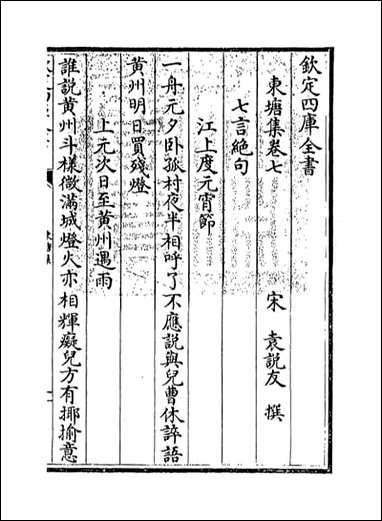 欽定四庫全書
東塘集卷七
宋 袁說友 撰
七言絶句
江上度元宵節
一舟元夕卧孤村夜半相呼了不應說與兒曹休誶語
黄州明日買殘燈
上元次日至黄州遇雨
誰説黄州斗樣㣲滿城燈火亦相輝癡兒方有揶揄意